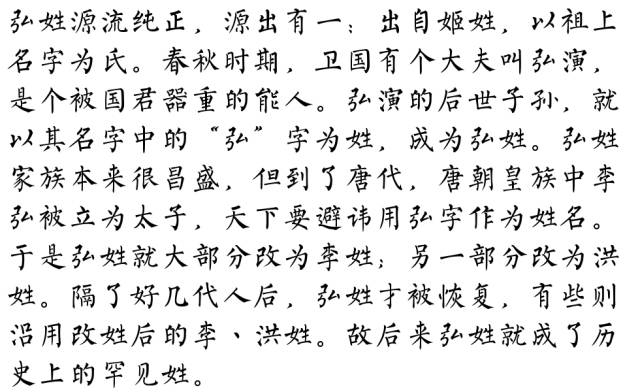 弘姓源流纯正，源出有一；出自姬姓，以祖上
名字为氏。春秋时期，卫国有个大夫叫弘演，
是个被国君器重的能人。弘演的后世子孙，就
以其名字中的“弘”字为姓，成为弘姓。弘姓
家族本来很昌盛，但到了唐代，唐朝皇族中李
弘被立为太子，天下要避讳用弘字作为姓名。
于是弘姓就大部分改为李姓；另一部分改为洪
姓。隔了好几代人后，弘姓才被恢复，有些则
沿用改姓后的李、洪姓。故后来弘姓就成了历
史上的罕见姓。